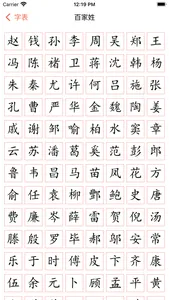 12:19 PM
字表
百家姓
赵 钱 孙 李 周 吴 郑 王
冯 陈 褚 卫 蒋 沈 韩 杨
朱 秦 尤 许 何 吕 施 张
孔 曹 严 华 金 魏 陶 姜
戚 谢 邹 喻 柏 水 窦 章
云 苏 潘 葛 奚 范 彭 郎
鲁 韦 昌 马 苗 凤 花 方
俞 任 袁 柳 酆 鲍 史 唐
费 廉 岑 薛 雷 贺 倪 汤
滕 殷 罗 毕 郝 邬 安 常
乐 于 时 傅 皮 卞 齐 康
伍 余 元 卜 顾 孟 平 黄